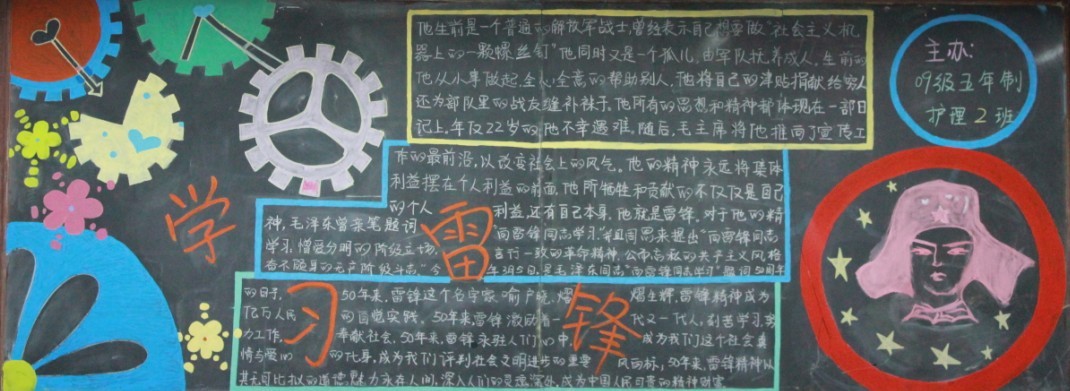 他生前是一个普通的解放军战士,曾经表示自己想要做“社会主义机
器上的一颗螺丝钉”他同时又是一个孤儿,由军队抚养成人,生前的
他从小事做起,全心全意的帮助别人,他将自己的津贴捐献给穷人
还为部队里的战友缝补袜子,他所有的思想和精神都体现在一部日
记上,年仅22岁的他不幸遇难,随后,毛主席将他推向了宣传工
作的最前沿,以改变社会上的风气。他的精神永远将集体
利益摆在个人利益的前面,他所牺牲和贡献的不仅仅是自己
的个人 利益,还有自己本身,他就是雷锋,对于他的精
神,毛泽东曾亲笔题词 “向雷锋同志学习”并且周恩来提出“向雷锋同志
学习,憎爱分明的阶级立场, 言行一致的革命精神,公而忘私的共产主义风格
奋不顾身的无产阶级斗志”今 年3月5日,是毛泽东同志“向雷锋同志学习”题词50周年
的日子, 50年来,雷锋这个名字家喻户晓, 熠生辉,雷锋精神成为
亿万人民 的自觉实践, 50年来,雷锋激励着一 代又一代人,刻苦学习,努
力工作, 奉献社会,50年来,雷锋永驻人们心中, 成为我们这个社会真
情与爱心 的化身,成为我们评判社会文明进步的重要 风向标,50年来,雷锋精神以
其无可比拟的道德魅力永在人间,深入人们的灵魂深处,成为中国人民可贵的精神财富
学
习
雷
锋
主办:
09级五年制
护理2班